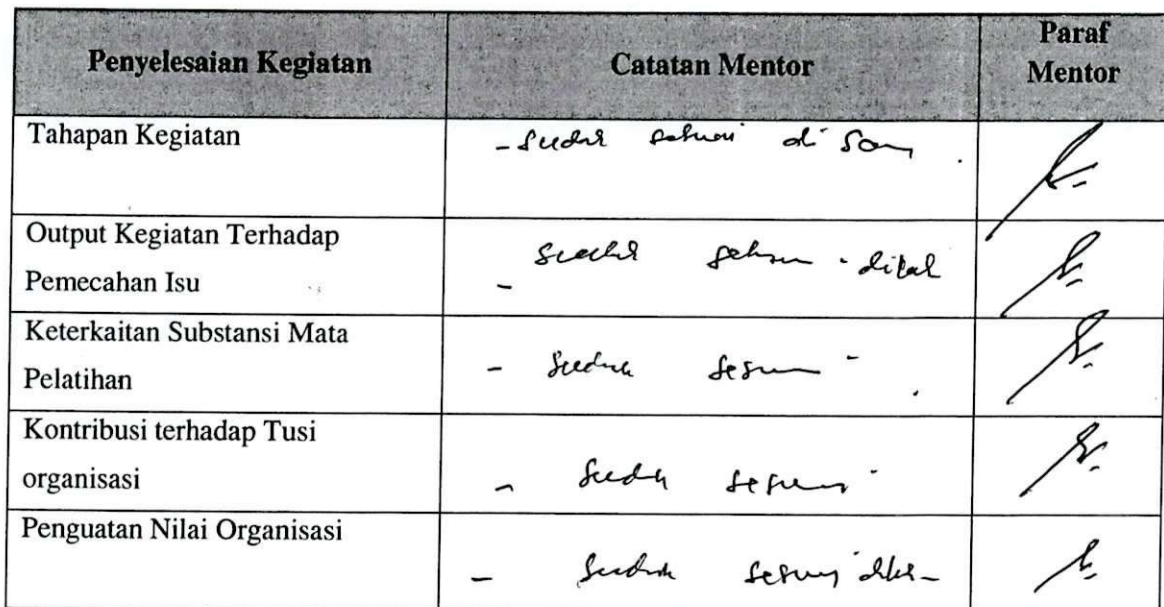 Penyelesaian Kegiatan
Catatan Mentor
Paraf
Mentor
Tahapan Kegiatan
- sudah sesuai di
Output Kegiatan Terhadap
Pemecahan Isu
- sudah sesuai
Keterkaitan Substansi Mata
Pelatihan
- sudah sesuai
Kontribusi terhadap Tusi
organisasi
- sudah sesuai
Penguatan Nilai Organisasi
- sudah sesuai